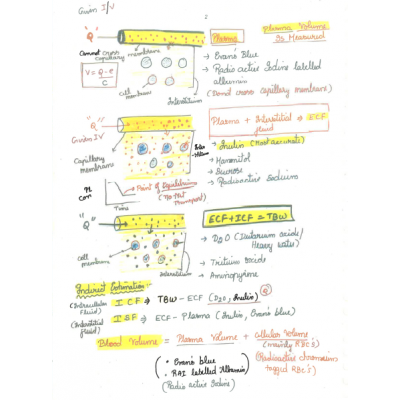 Given I/V
2
"Q"
Cannot cross capillary membrane
V = Q - e / C
cell membrane
Interstitium
Plasma
Plasma Volume Is Measured
→ Evan's Blue
→ Radio active Iodine labelled albumin
(Donot cross capillary membrane)
"Q"
Given IV
Capillary membrane
Plasma + Interstitial fluid ⇒ ECF
→ Inulin (Most accurate)
→ Mannitol
→ Sucrose
→ Radioactive Sodium
Pl Con
Time
Point of Equilibrium
"Q"
cell membrane
Interstitium
ECF + ICF = TBW
→ D₂O (Deuterium oxide/ Heavy water)
→ Tritium oxide
→ Aminopyrine
Indirect Estimation:-
(Intracellular Fluid) ICF ⇒ TBW - ECF (D₂O, Inulin)
(Interstitial fluid) ISF ⇒ ECF - Plasma (Inulin, Evan's blue)
Blood Volume = Plasma Volume + Cellular Volume (mainly RBC's)
• Evan's blue
• RAI labelled Albumin
(Radio active Iodine)
(Radioactive chromium tagged RBC's)